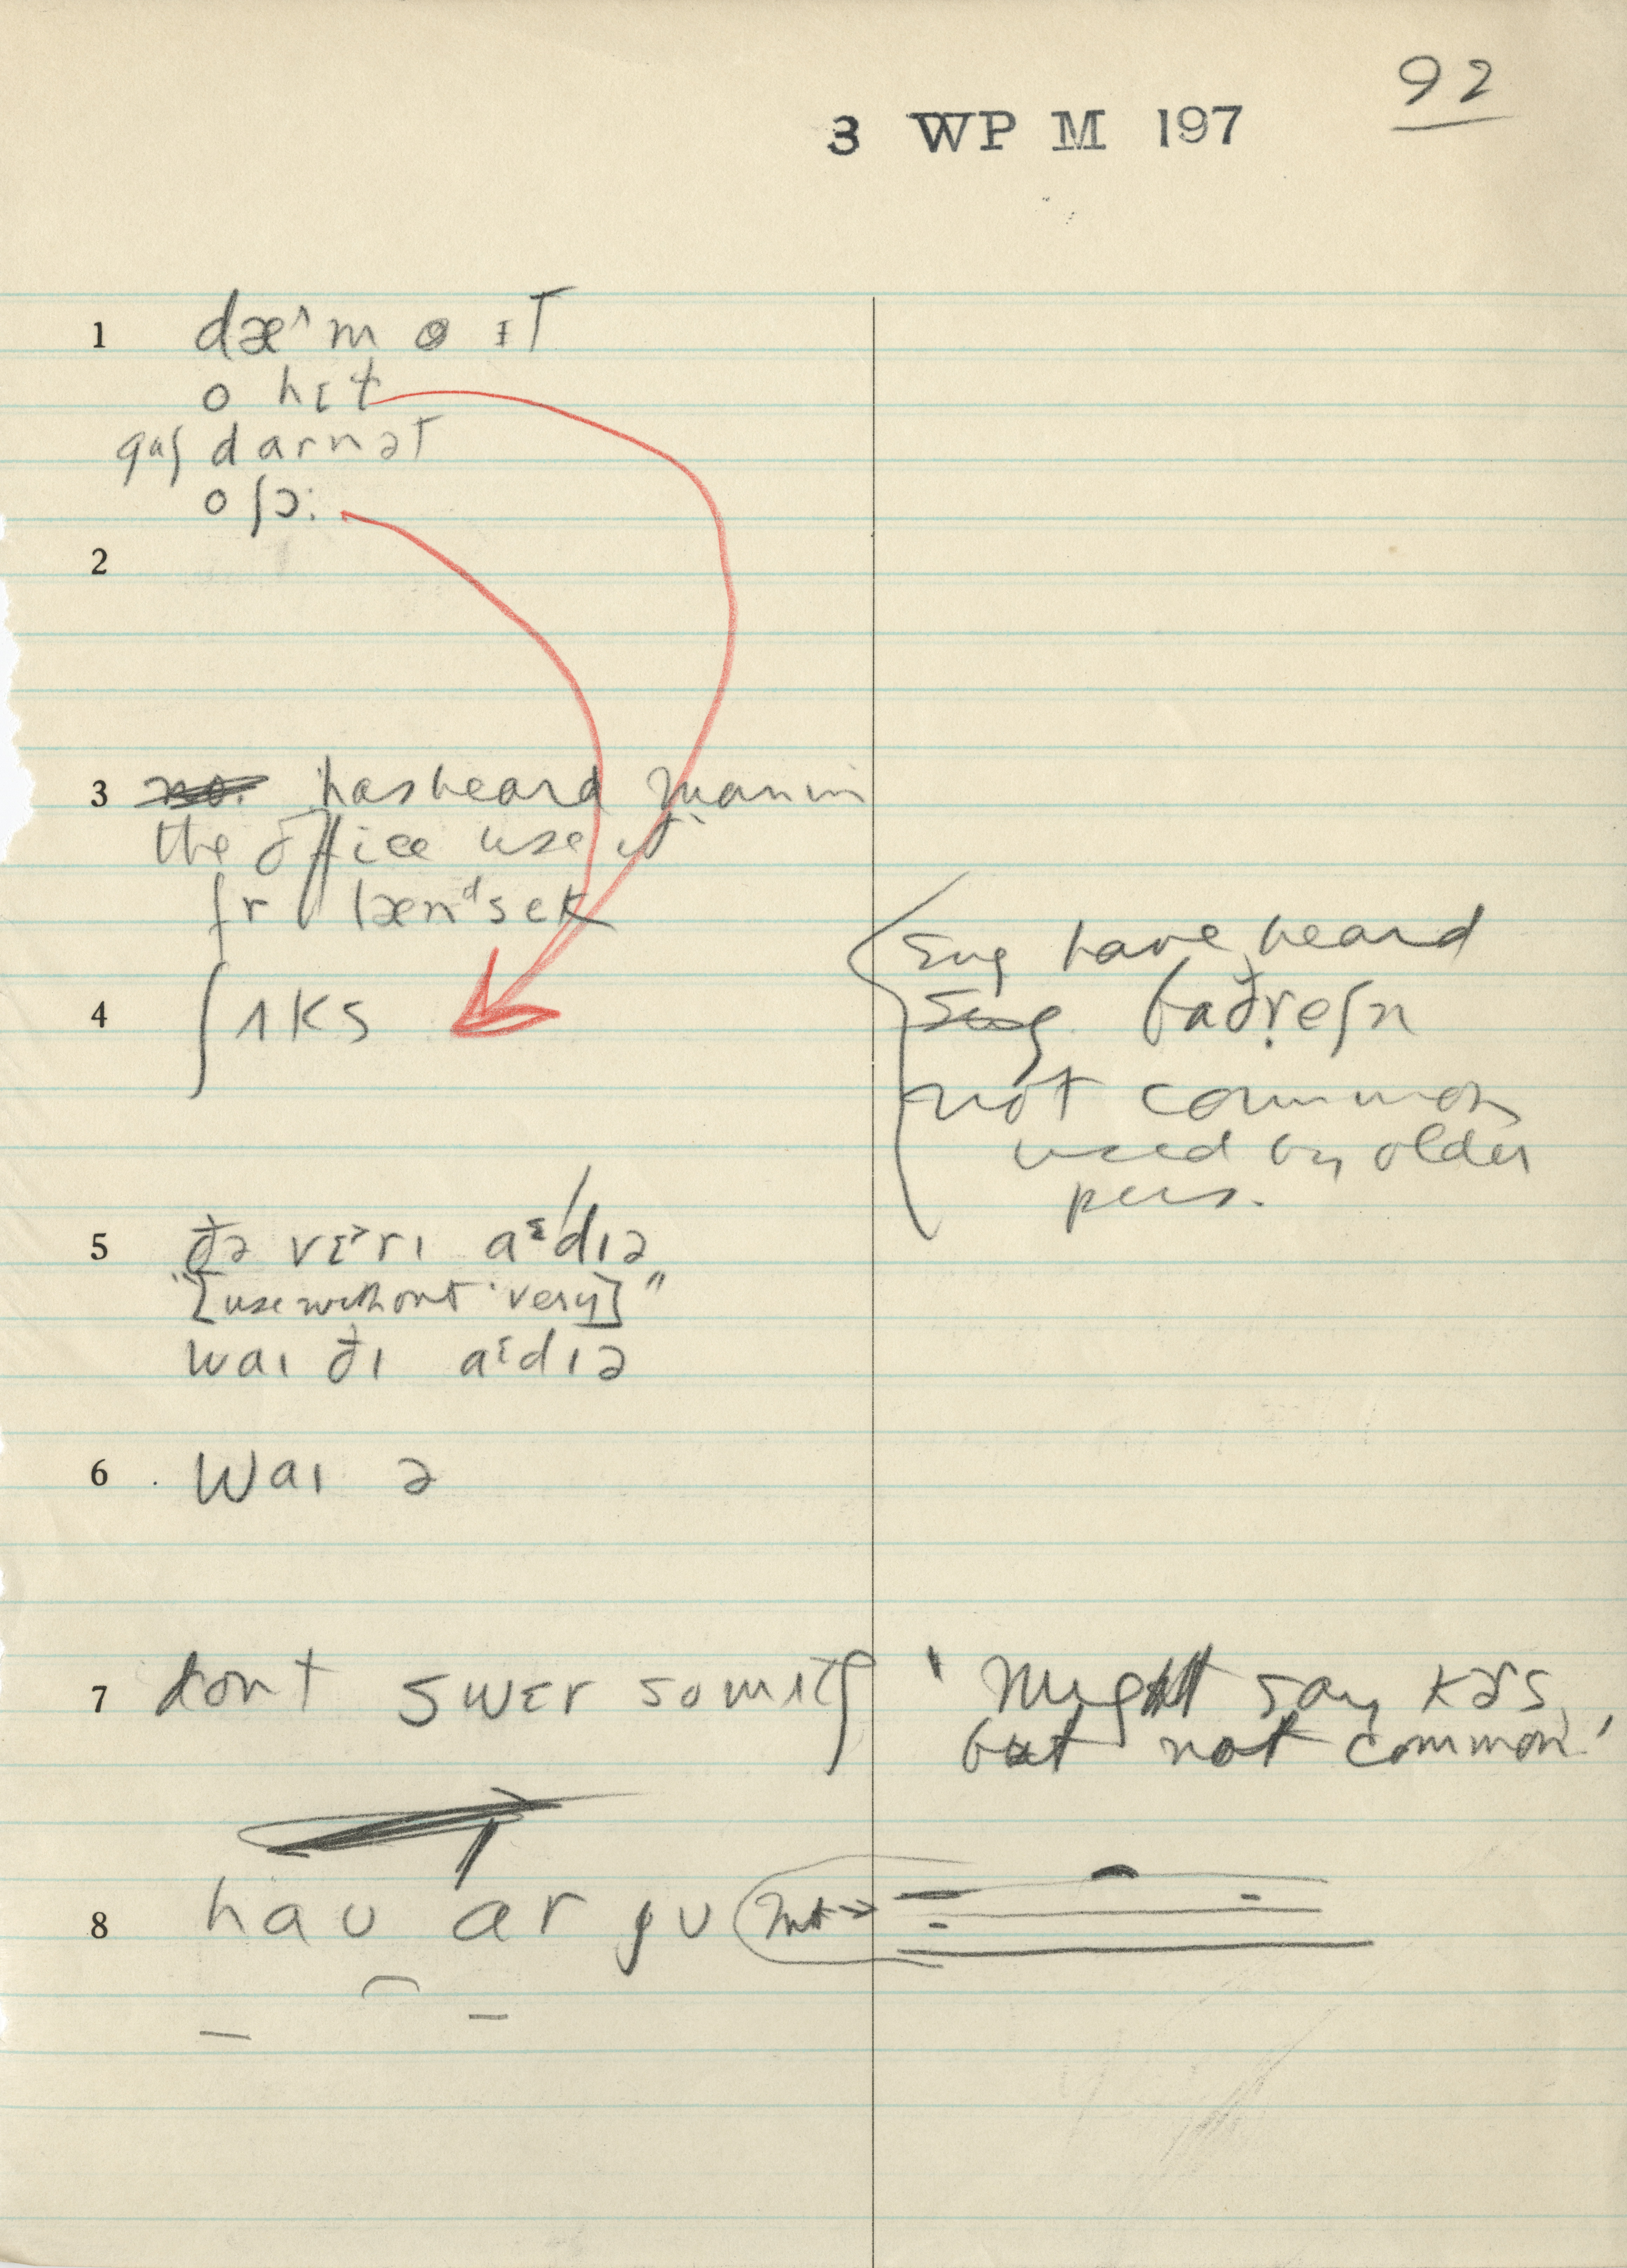 92
3 WP M 197
1 dæ^m ɪT
o hɛt
gɑʃ darnəT
o ʃɔ:
2
3 has heard man in
the office use it
fr lænᵈsek
4 ʃʌks
Sug have heard
Sug baðr̩eʃn
not common
used by older
pers.
5 ðə vɛ˃rɪ aᶓdɪə
"[use without 'very]"
waɪ ðɪ aᶓdɪə
6 Waɪ ə
7 dont swɛr
'Might say
but not common.'
8 haʊ ar ju Int →